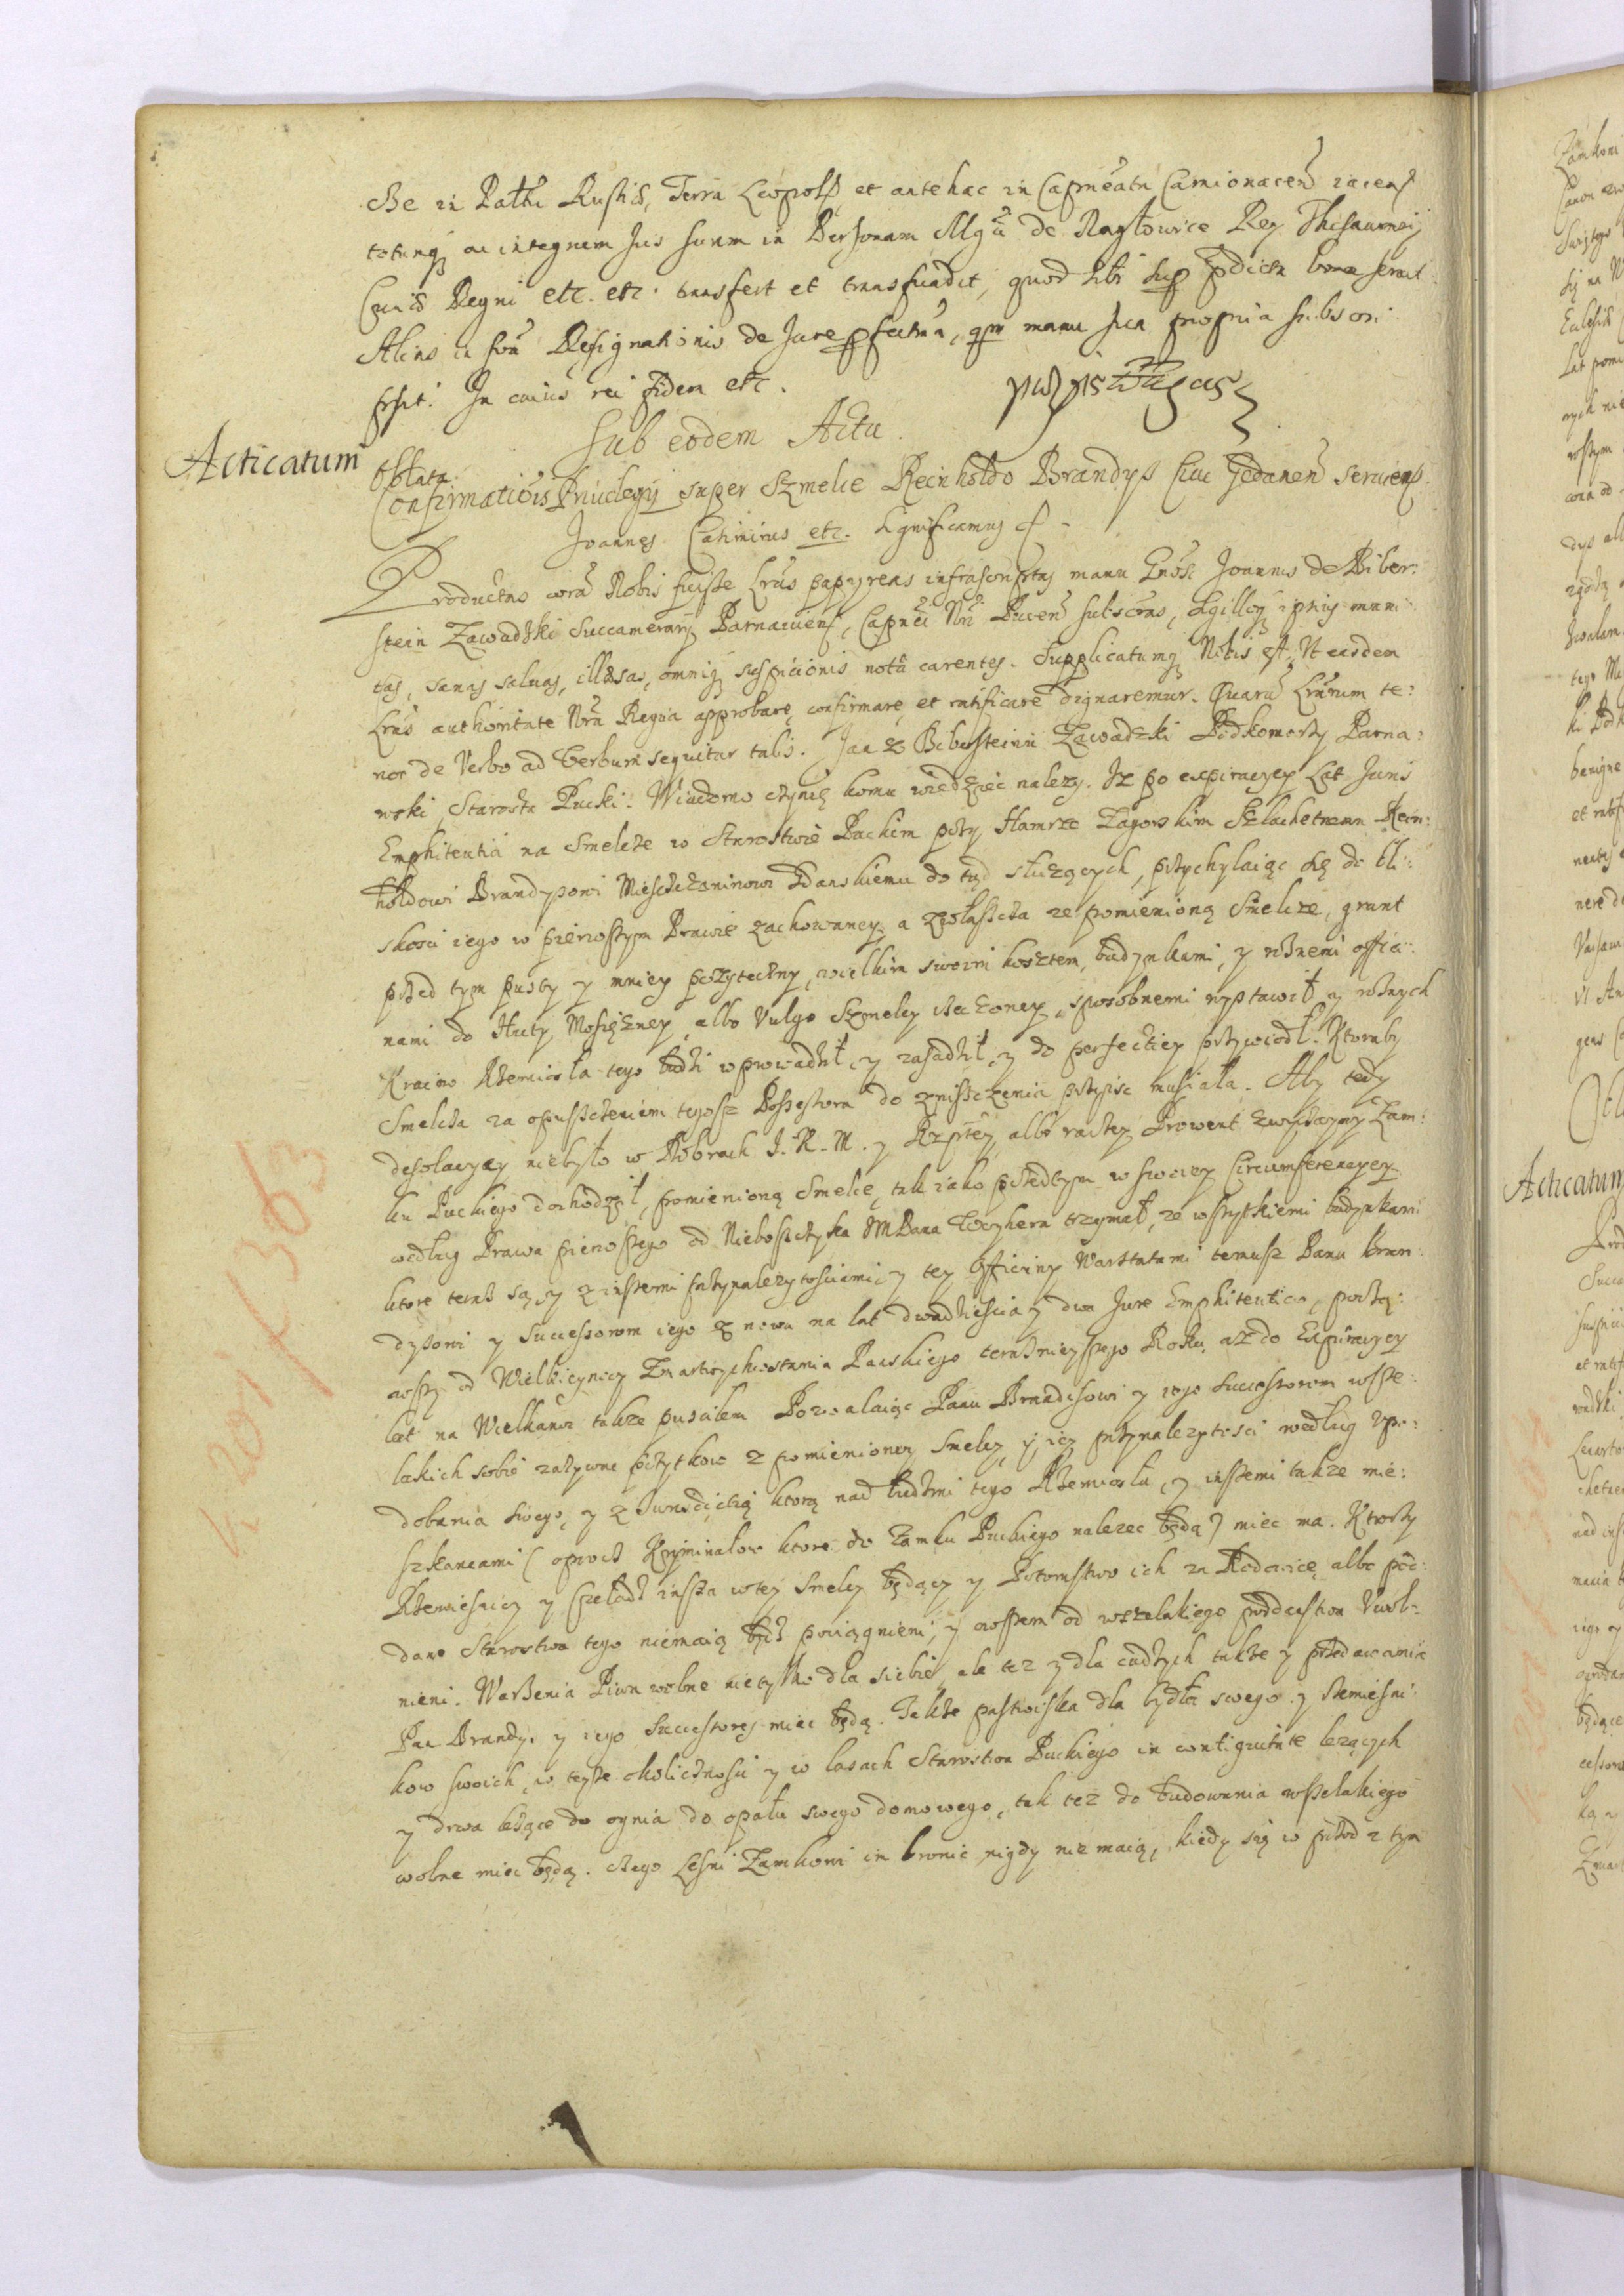 in Rathu Terra Leopol et antehac in Capneatu Camionacen iacens
totumq ac integrum Jus suum in Personam Mgci de Nagłowice Rey Thesaurarij
Curiæ Regni etc. etc. transfert et transfundit, quod sibi sup pdicta bona servit.
Alias in Resignationis de Jure pfectam, qm manu sua propria subscri
psit. In cuius rei fidem etc.
Sub eodem Actu.
Acticatum
Oblata
Confirmatiois Priuilegij super Szmelce Reinholdo Brandys Ciui Gedanen seruiens.
Joannes Casimirus etc. Significamus
Productas corā Nobis fuisse Lrās papyreas infrascriptas manu Gnōsi Joannis de Biber:
stein Zawadzki Succamerarij Parnauien, Capnei Nri Pucen subscras, Sigilloq ipsius muni:
tas, sanas saluas, illæsas, omniq suspicionis notâ carentes. Supplicatumq Nobis est, Ut easdem
Lrās authoritate Nrā Regia approbare, confirmare, et ratificare dignaremur. Quarū Lrārum te:
nor de Verbo ad Verbum sequitur talis. Jan z Bibersteinu Zawadzki Podkomorzy Parna:
wski, Starosta Pucki. Wiadomo czynię komu wiedzieć nalezy. Iz po expiracyey Lat Juris
Emphiteutici na Smelcze w Starostwie Puckim przy Hamrze Zagorskim Szlachetnemu Rein:
holdowi Brandysowi Miesczaninowi Gdanskiemu do tąd służących, przychylaiąc się do bli:
skosci iego w pierwszym Prawie zachowaney, a zwłaszcza ze pomienioną Smelcze, grunt
przed tym pusty y mniey pozyteczny, wielkim swoim kosztem, budynkami, y roznemi offici:
nami do Huty Mosiężney, albo Vulgo Szmelcy rzeczoney, sposobnemi wystawił y roznych
Kraiow Rzemiosła tego ludzi wprowadził, y zasadził, y do perfectiey przywiodł. Ktoraby
Smelcza za opuszczeniem tegosz Possessora do zniszczenia przyisc musiała. Aby tedy
desolacyey niebyło w Dobrach J. K. M. y Rzptey, albo raczey Prowent zwyczayny Zam:
ku Puckiego dochodził, pomienioną Smelcę, tak iako przedtym w swoiey Circumferencyey
według Prawa pierwszego od Nieboszczyka JM Pana Weyhera trzymał, ze wszytkiemi budynkami
ktore teraz są, y z inszemi przynaleznosciami, y tey Officiny Warstatami temusz Panu Bran:
dysowi y Successorom iego z nowu na lat dwadziescia y dwa Jure Emphiteutico, począ:
wszy od Wielkieynocy Zmartwychwstania Panskiego teraznieyszego Roku, az do Expiracyey
lat na Wielkanoc takze pusciłem. Pozwalaiąc Panu Brandisowi y iego Successorom wsze:
lakich sobie zazywac pozytkow z pomienioney Smelcy, y iey przynalezytosci według vpo:
dobania swego, y z Jurisdictią ktorą nad ludzmi tego Rzemiosła, y inszemi takze mie:
szkancami (oprocz Kryminałow ktore do Zamku Puckiego nalezec będą) miec ma. Ktorzy
Rzemiesnicy y Czeladz insza w tey Smelcy będący y Potomstwo ich za Rodowicę albo pod:
dane Starostwa tego niemaią bydz pociągnieni, y owszem od wszelakiego poddanstwa Uwol:
nieni. Warzenia Piwa wolne nie tylko dla siebie, ale tez y dla cudzych takze y przedawanie
Pan Brandys y iego Successores miec będą. Takze pastwiska dla bydła swego y rzemiesni:
kow swoich, w teyze okolicznosci y w lasach Starostwa Puckiego in contiguitate lezących
y drwa lezące do ognia do opału swego domowego, tak tez do budowania wszelakiego
wolne miec będą. Czego Lesni Zamkowi im bronic nigdy nie maią, kiedy się w przod z tym
Acticatum